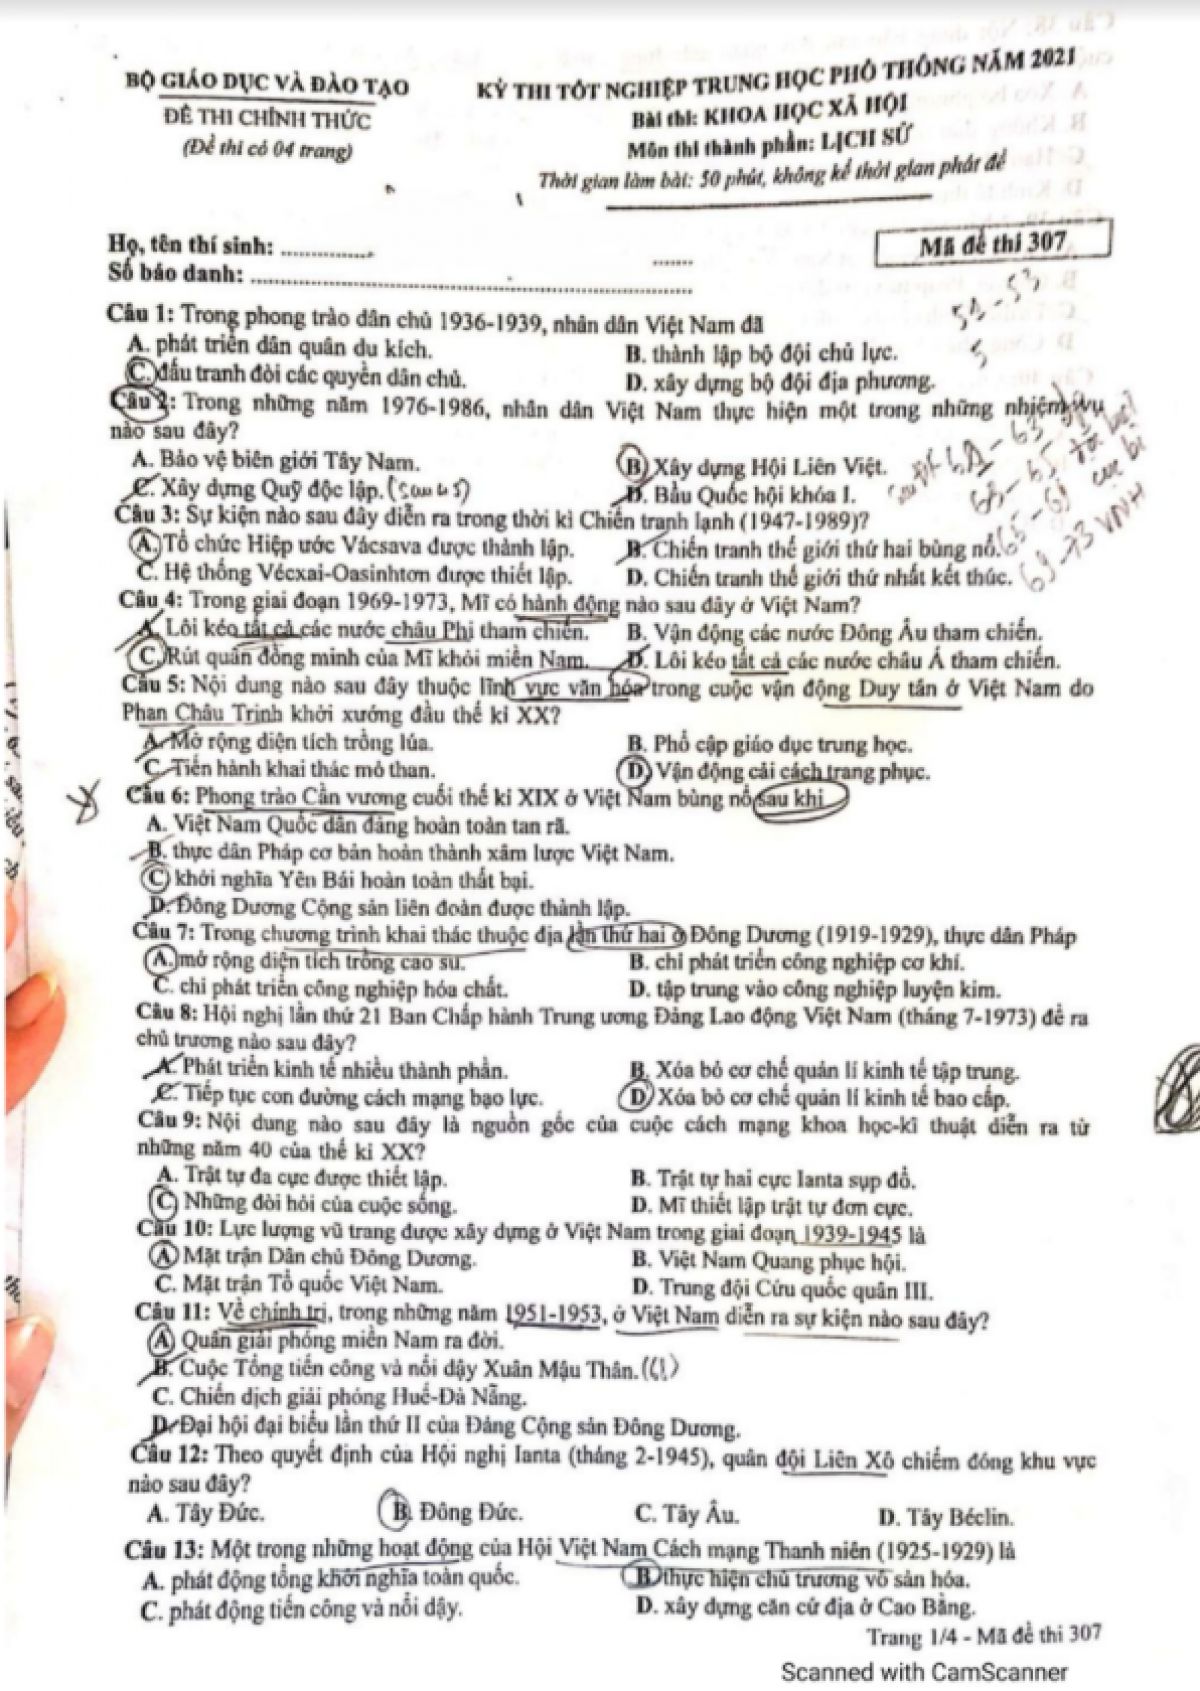 BỘ GIÁO DỤC VÀ ĐÀO TẠO
ĐỀ THI CHÍNH THỨC
(Đề thi có 04 trang)
KỲ THI TỐT NGHIỆP TRUNG HỌC PHỔ THÔNG NĂM 2021
Bài thi: KHOA HỌC XÃ HỘI
Môn thi thành phần: LỊCH SỬ
Thời gian làm bài: 50 phút, không kể thời gian phát đề
Họ, tên thí sinh:
Số báo danh:
Mã đề thi 307
Câu 1: Trong phong trào dân chủ 1936-1939, nhân dân Việt Nam đã
A. phát triển dân quân du kích. B. thành lập bộ đội chủ lực.
C. đấu tranh đòi các quyền dân chủ. D. xây dựng bộ đội địa phương.
Câu 2: Trong những năm 1976-1986, nhân dân Việt Nam thực hiện một trong những nhiệm vụ
nào sau đây?
A. Bảo vệ biên giới Tây Nam. B. Xây dựng Hội Liên Việt.
C. Xây dựng Quỹ độc lập. D. Bầu Quốc hội khóa I.
Câu 3: Sự kiện nào sau đây diễn ra trong thời kì Chiến tranh lạnh (1947-1989)?
A. Tổ chức Hiệp ước Vácsava được thành lập. B. Chiến tranh thế giới thứ hai bùng nổ.
C. Hệ thống Vécxai-Oasinhtơn được thiết lập. D. Chiến tranh thế giới thứ nhất kết thúc.
65-69
69-73 VNH
Câu 4: Trong giai đoạn 1969-1973, Mĩ có hành động nào sau đây ở Việt Nam?
A. Lôi kéo tất cả các nước châu Phi tham chiến. B. Vận động các nước Đông Âu tham chiến.
C. Rút quân đồng minh của Mĩ khỏi miền Nam. D. Lôi kéo tất cả các nước châu Á tham chiến.
Câu 5: Nội dung nào sau đây thuộc lĩnh vực văn hóa trong cuộc vận động Duy tân ở Việt Nam do
Phan Châu Trinh khởi xướng đầu thế kỉ XX?
A. Mở rộng diện tích trồng lúa. B. Phổ cập giáo dục trung học.
C. Tiến hành khai thác mỏ than. D. Vận động cải cách trang phục.
Câu 6: Phong trào Cần vương cuối thế kỉ XIX ở Việt Nam bùng nổ sau khi
A. Việt Nam Quốc dân đảng hoàn toàn tan rã.
B. thực dân Pháp cơ bản hoàn thành xâm lược Việt Nam.
C. khởi nghĩa Yên Bái hoàn toàn thất bại.
D. Đông Dương Cộng sản liên đoàn được thành lập.
Câu 7: Trong chương trình khai thác thuộc địa lần thứ hai ở Đông Dương (1919-1929), thực dân Pháp
A. mở rộng diện tích trồng cao su. B. chỉ phát triển công nghiệp cơ khí.
C. chỉ phát triển công nghiệp hóa chất. D. tập trung vào công nghiệp luyện kim.
Câu 8: Hội nghị lần thứ 21 Ban Chấp hành Trung ương Đảng Lao động Việt Nam (tháng 7-1973) đề ra
chủ trương nào sau đây?
A. Phát triển kinh tế nhiều thành phần. B. Xóa bỏ cơ chế quản lí kinh tế tập trung.
C. Tiếp tục con đường cách mạng bạo lực. D. Xóa bỏ cơ chế quản lí kinh tế bao cấp.
Câu 9: Nội dung nào sau đây là nguồn gốc của cuộc cách mạng khoa học-kĩ thuật diễn ra từ
những năm 40 của thế kỉ XX?
A. Trật tự đa cực được thiết lập. B. Trật tự hai cực Ianta sụp đổ.
C. Những đòi hỏi của cuộc sống. D. Mĩ thiết lập trật tự đơn cực.
Câu 10: Lực lượng vũ trang được xây dựng ở Việt Nam trong giai đoạn 1939-1945 là
A. Mặt trận Dân chủ Đông Dương. B. Việt Nam Quang phục hội.
C. Mặt trận Tổ quốc Việt Nam. D. Trung đội Cứu quốc quân III.
Câu 11: Về chính trị, trong những năm 1951-1953, ở Việt Nam diễn ra sự kiện nào sau đây?
A. Quân giải phóng miền Nam ra đời.
B. Cuộc Tổng tiến công và nổi dậy Xuân Mậu Thân.
C. Chiến dịch giải phóng Huế-Đà Nẵng.
D. Đại hội đại biểu lần thứ II của Đảng Cộng sản Đông Dương.
Câu 12: Theo quyết định của Hội nghị Ianta (tháng 2-1945), quân đội Liên Xô chiếm đóng khu vực
nào sau đây?
A. Tây Đức. B. Đông Đức. C. Tây Âu. D. Tây Béclin.
Câu 13: Một trong những hoạt động của Hội Việt Nam Cách mạng Thanh niên (1925-1929) là
A. phát động tổng khởi nghĩa toàn quốc. B. thực hiện chủ trương vô sản hóa.
C. phát động tiến công và nổi dậy. D. xây dựng căn cứ địa ở Cao Bằng.
Trang 1/4 - Mã đề thi 307
Scanned with CamScanner